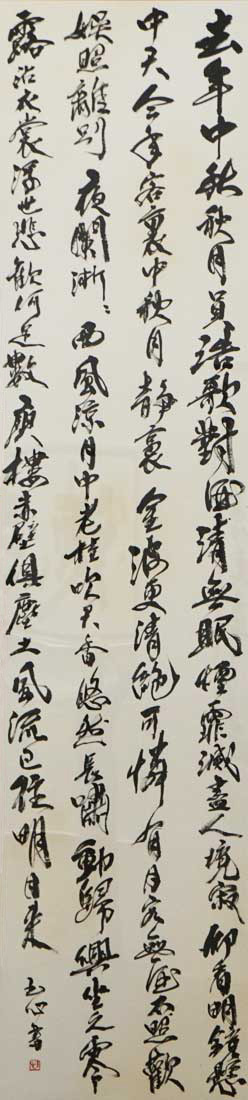 去年中秋秋月員浩歌對酒清無眠煙霏滅盡人境寂仰看明鏡懸
中天今年客裏中秋月靜裏金波更清絕可憐有月客無酒不照歡
娛照離別夜闌淅淅西風涼月中老桂吹天香悠然長嘯動歸興坐久零
露沾衣裳浮世悲歡何足數庾樓赤壁俱塵土風流已往明月來
心書